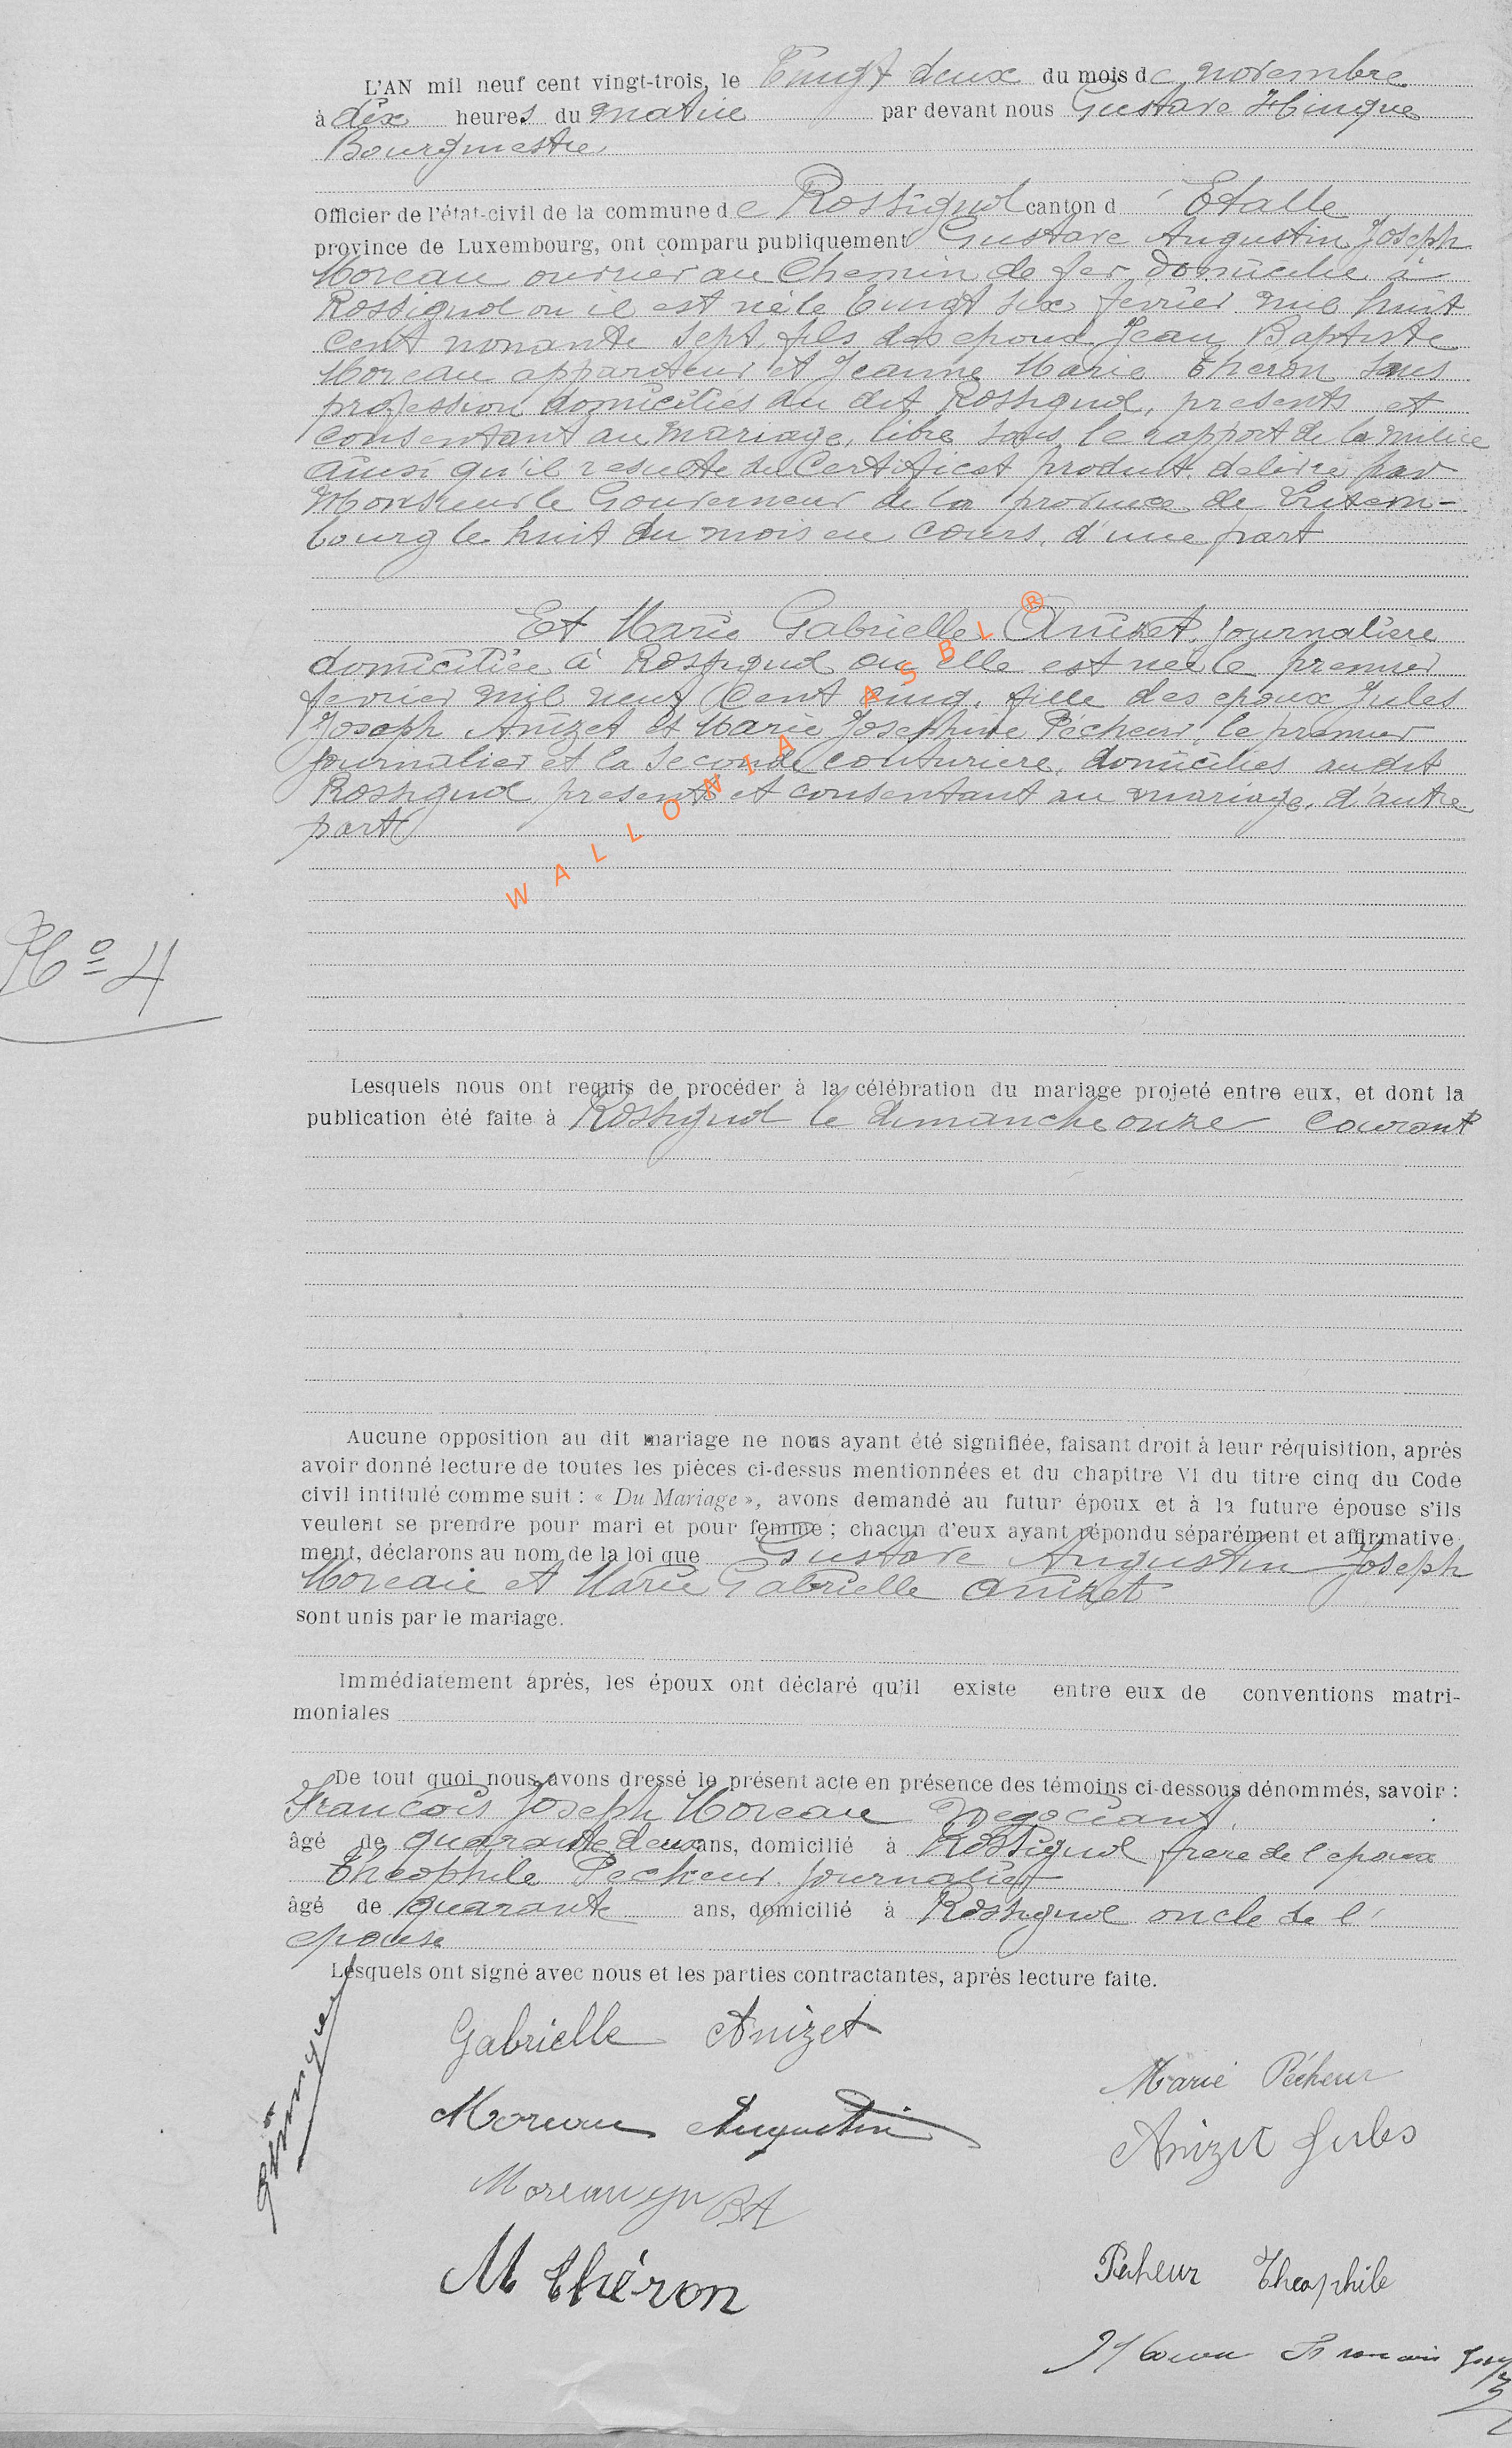 L'AN mil neuf cent vingt-trois, le Vingt deux du mois de novembre
à dix heures du matin par devant nous Gustave Hinque
Bourgmestre
Officier de l'état-civil de la commune de Rossignol canton d'Etalle
province de Luxembourg, ont comparu publiquement Gustave Augustin Joseph
Moreau ouvrier au Chemin de fer, domicilié à
Rossignol ou il est né le Vingt six fevrier mil huit
cent nonante sept, fils des epoux Jean Baptiste
Moreau appariteur et Jeanne Marie Theron sans
profession domiciliés au dit Rossignol, presents et
consentant au mariage, libre sous le rapport de la milice
ainsi qu'il resulte du Certificat produit, delivré par
Monsieur le Gouverneur de la province de Luxem-
bourg le huit du mois en cours, d'une part
Et Marie Gabrielle Anizet, journalière
domiciliée à Rossignol ou elle est née le premier
fevrier mil neuf cent cinq, fille des epoux Jules
Joseph Anizet et Marie Josephine Pécheur, le premier
journalier et la seconde couturiere, domiciliés audit
Rossignol presents et consentant au mariage, d'autre
part
WALLONIA ASBL ®
No 4
Lesquels nous ont requis de procéder à la célébration du mariage projeté entre eux, et dont la
publication été faite à Rossignol le dimanche onze courant
Aucune opposition au dit mariage ne nous ayant été signifiée, faisant droit à leur réquisition, après
avoir donné lecture de toutes les pièces ci-dessus mentionnées et du chapitre VI du titre cinq du Code
civil intitulé comme suit : « Du Mariage », avons demandé au futur époux et à la future épouse s'ils
veulent se prendre pour mari et pour femme ; chacun d'eux ayant répondu séparément et affirmative
ment, déclarons au nom de la loi que Gustave Augustin Joseph
Moreau et Marie Gabrielle Anizet
sont unis par le mariage.
Immédiatement après, les époux ont déclaré qu'il existe entre eux de conventions matri-
moniales
De tout quoi nous avons dressé le présent acte en présence des témoins ci-dessous dénommés, savoir :
Francois Joseph Moreau Negociant,
âgé de quarante deux ans, domicilié à Rossignol frere de l epoux
Theophile Pecheur journalier
âgé de quarante ans, domicilié à Rossignol oncle de l'
epouse
Lesquels ont signé avec nous et les parties contractantes, après lecture faite.
Gabrielle Anizet
Marie Pécheur
Moreau Augustin
Anizet Jules
Moreau JBt
M théron
Pecheur Theophile
Moreau Francois